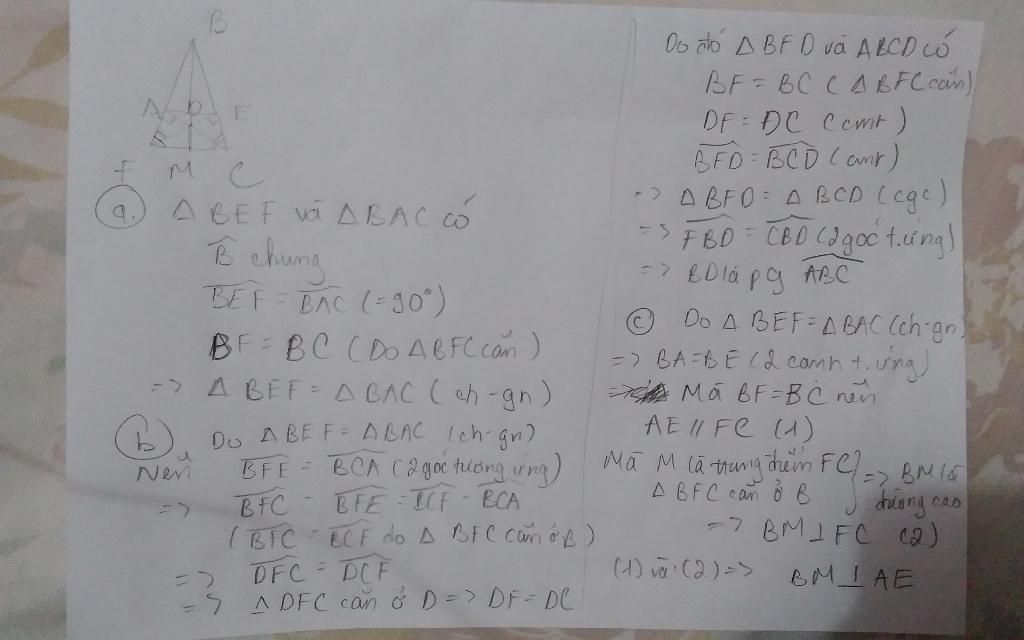 B
A D E
F M C
a. Δ BEF và Δ BAC có
B̂ chung
BEF = BAC (=90°)
BF = BC (Do ΔBFC cân)
=> Δ BEF = Δ BAC (ch-gn)
b Do Δ BEF = ΔBAC (ch-gn)
Nên BFE = BCA (2 góc tương ứng)
=> BFC - BFE = BCF - BCA
(BFC = BCF do Δ BFC cân ở B)
=> DFC = DCF
=> Δ DFC cân ở D => DF = DC
Do đó Δ BFD và ΔBCD có
BF = BC (Δ BFC cân)
DF = DC (cmt)
BFD = BCD (cmt)
=> Δ BFD = Δ BCD (cgc)
=> FBD = CBD (2 góc t.ứng)
=> BD là pg ABC
c Do Δ BEF = ΔBAC (ch-gn)
=> BA = BE (2 cạnh t.ứng)
Mà BF = BC nên
AE // FC (1)
Mà M là trung điểm FC
Δ BFC cân ở B
=> BM là
đường cao
=> BM ⊥ FC (2)
(1) và (2) => BM ⊥ AE